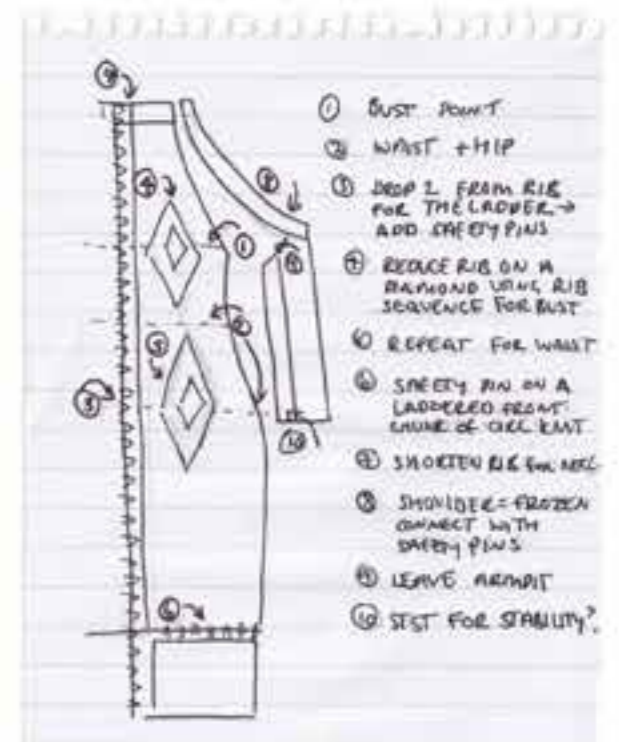 ① BUST POINT
② WAIST + HIP
③ DROP 2 FROM RIB
FOR THE LADDER →
ADD SAFETY PINS
④ REDUCE RIB ON A
DIAMOND USING RIB
SEQUENCE FOR BUST
REPEAT FOR WAIST
⑥ SAFETY PIN ON A
LADDERED FRONT
CHUNK OF
⑦ SHORTEN RIB FOR NECK
⑧ SHOULDER = FROZEN
CONNECT WITH
SAFETY PINS
⑨ LEAVE ARMPIT
⑩ FOR STABILITY?